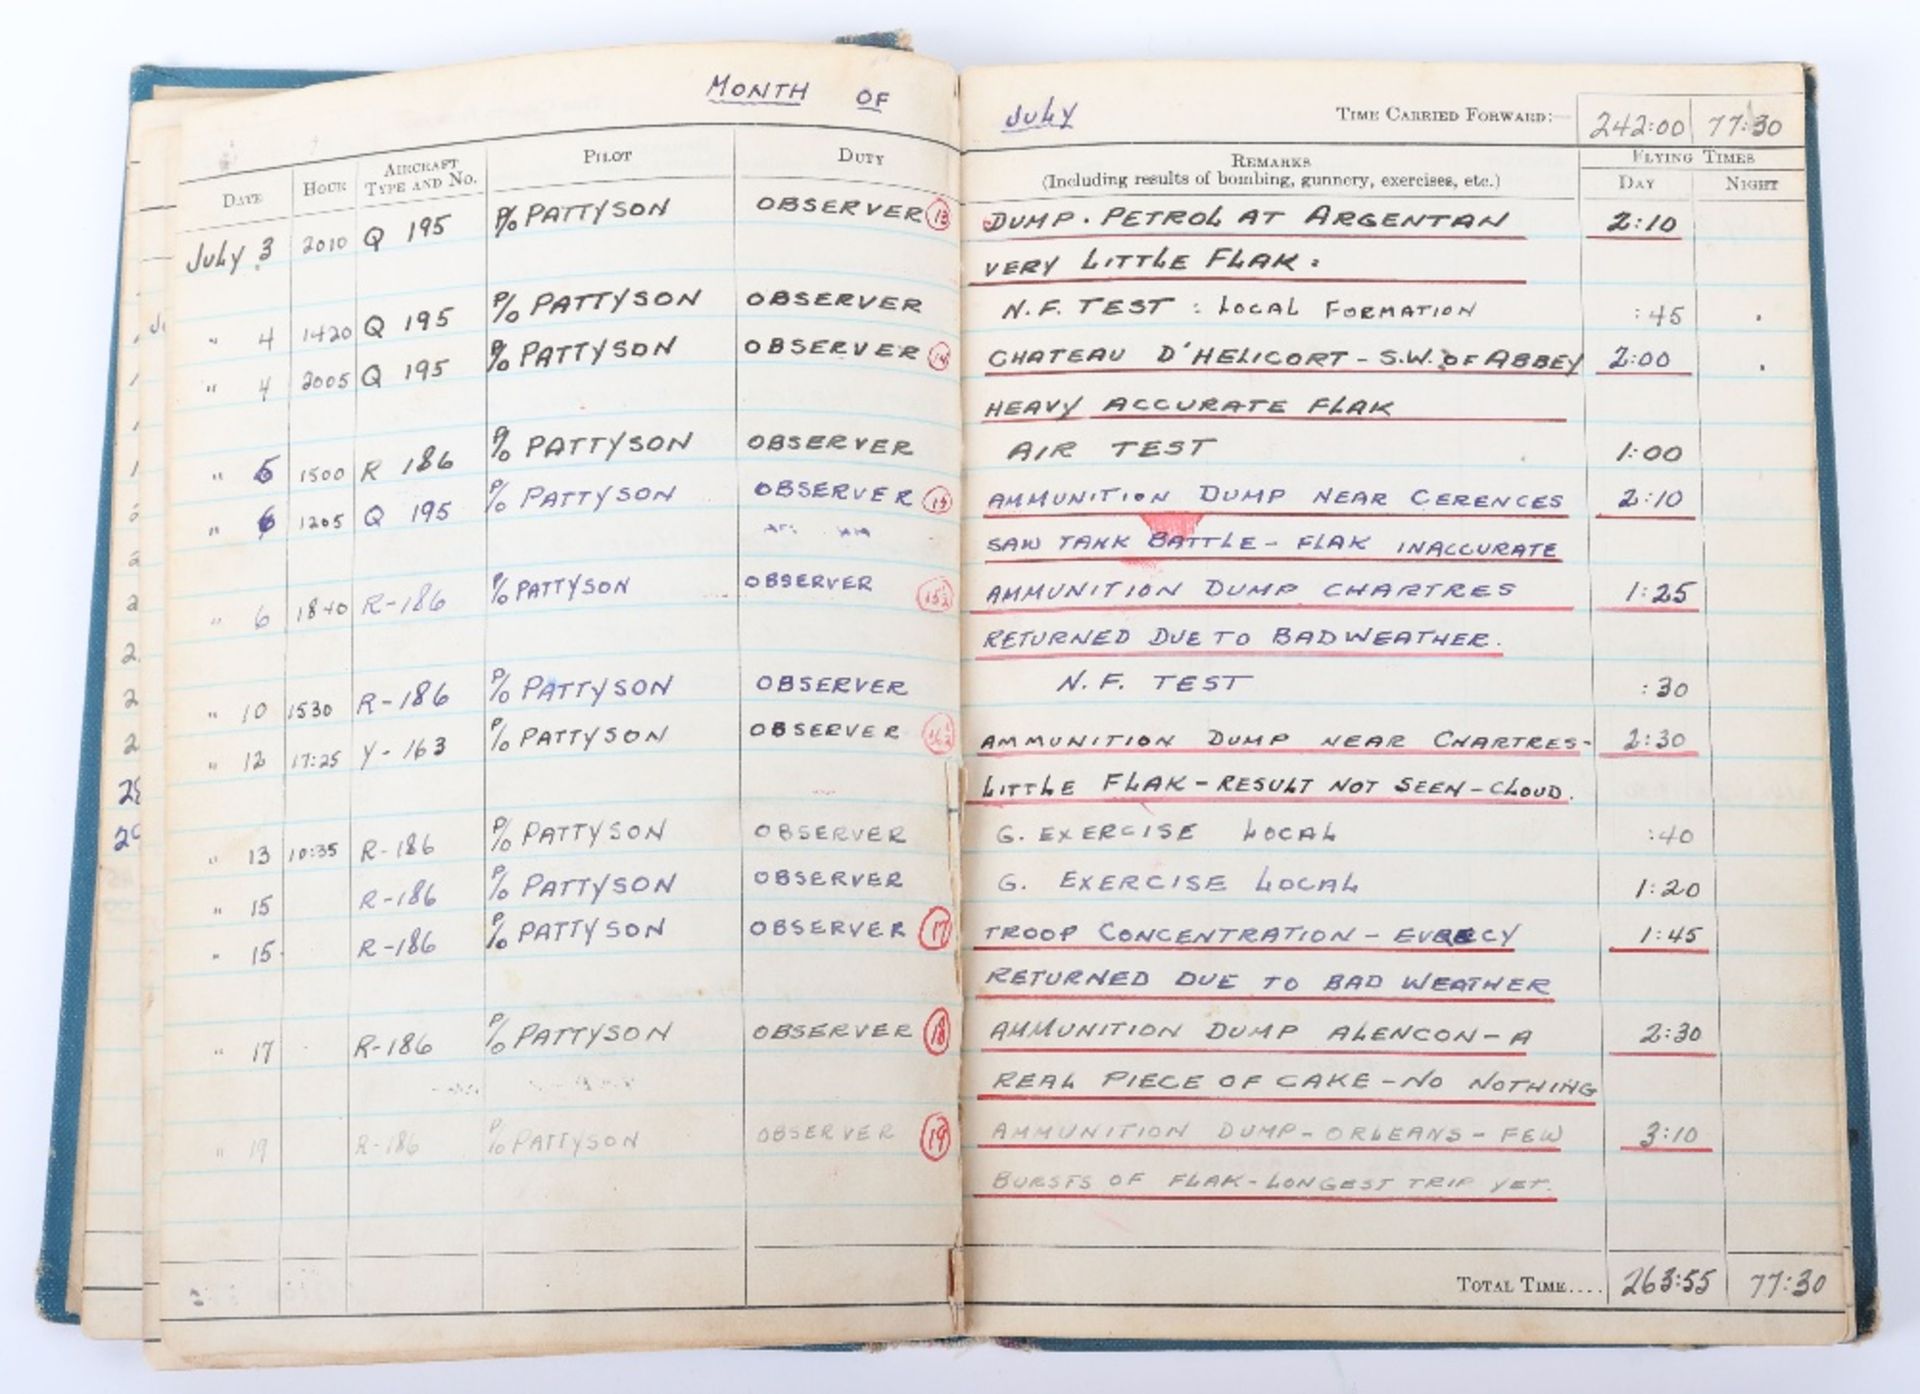 MONTH OF JULY TIME CARRIED FORWARD:— 242:00 77:30
DATE HOUR AIRCRAFT TYPE AND NO. PILOT DUTY REMARKS (Including results of bombing, gunnery, exercises, etc.) FLYING TIMES DAY NIGHT
JULY 3 2010 Q 195 P/O PATTYSON OBSERVER 13 DUMP. PETROL AT ARGENTAN 2:10
VERY LITTLE FLAK.
" 4 1420 Q 195 P/O PATTYSON OBSERVER N.F. TEST : LOCAL FORMATION :45
" 4 2005 Q 195 P/O PATTYSON OBSERVER 14 CHATEAU D'HELICORT - S.W. OF ABBEY 2:00
HEAVY ACCURATE FLAK
" 5 1500 R 186 P/O PATTYSON OBSERVER AIR TEST 1:00
" 6 1205 Q 195 P/O PATTYSON OBSERVER 15 AMMUNITION DUMP NEAR CERENCES 2:10
SAW TANK BATTLE - FLAK INACCURATE
" 6 1840 R-186 P/O PATTYSON OBSERVER 15½ AMMUNITION DUMP CHARTRES 1:25
RETURNED DUE TO BAD WEATHER.
" 10 1530 R-186 P/O PATTYSON OBSERVER N.F. TEST :30
" 12 17:25 Y-163 P/O PATTYSON OBSERVER 16½ AMMUNITION DUMP NEAR CHARTRES- 2:30
LITTLE FLAK - RESULT NOT SEEN - CLOUD.
" 13 10:35 R-186 P/O PATTYSON OBSERVER G. EXERCISE LOCAL :40
" 15 R-186 P/O PATTYSON OBSERVER G. EXERCISE LOCAL 1:20
" 15. R-186 P/O PATTYSON OBSERVER 17 TROOP CONCENTRATION - EVRECY 1:45
RETURNED DUE TO BAD WEATHER
" 17 R-186 P/O PATTYSON OBSERVER 18 AMMUNITION DUMP ALENCON - A 2:30
REAL PIECE OF CAKE - NO NOTHING
" 19 R-186 P/O PATTYSON OBSERVER 19 AMMUNITION DUMP - ORLEANS - FEW 3:10
BURSTS OF FLAK - LONGEST TRIP YET.
TOTAL TIME.... 263:55 77:30